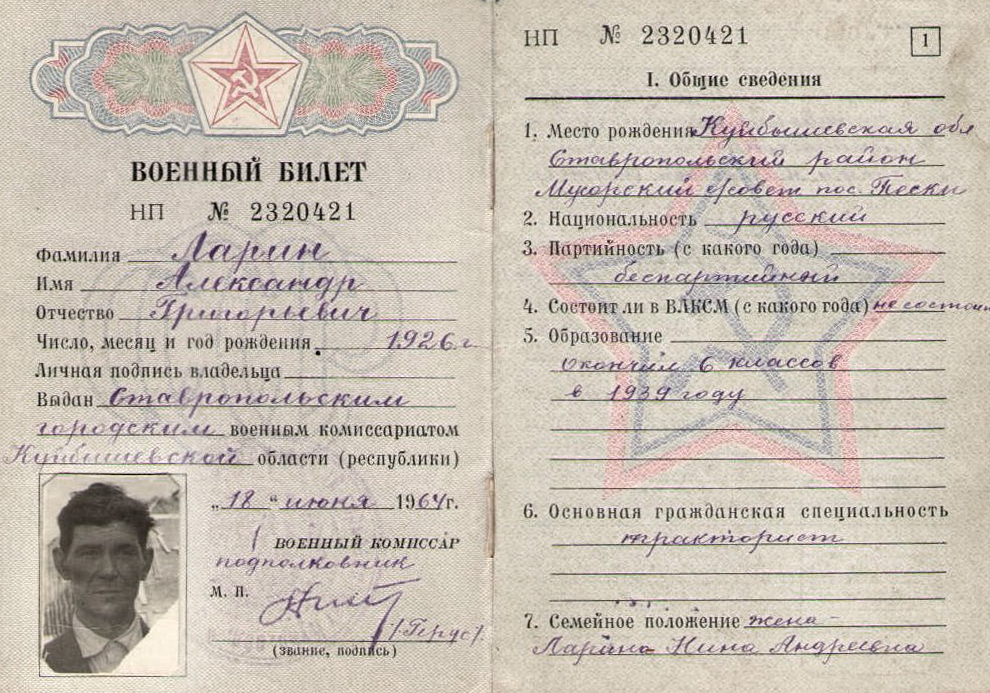 ВОЕННЫЙ БИЛЕТ
НП № 2320421
Фамилия Ларин
Имя Александр
Отчество Григорьевич
Число, месяц и год рождения 1926 г
Личная подпись владельца
Выдан Ставропольским
городским военным комиссариатом
Куйбышевской области (республики)
„18 “ июня 1964 г.
ВОЕННЫЙ КОМИССАР
подполковник
М. П.
/Герус/
(звание, подпись)
НП № 2320421
1
I. Общие сведения
1. Место рождения Куйбышевская обл
Ставропольский район
Мусорский с/совет пос. Пески
2. Национальность русский
3. Партийность (с какого года)
беспартийный
4. Состоит ли в ВЛКСМ (с какого года) не состоит
5. Образование
окончил 6 классов
в 1939 году
6. Основная гражданская специальность
тракторист
7. Семейное положение жена -
Ларина Нина Андреевна